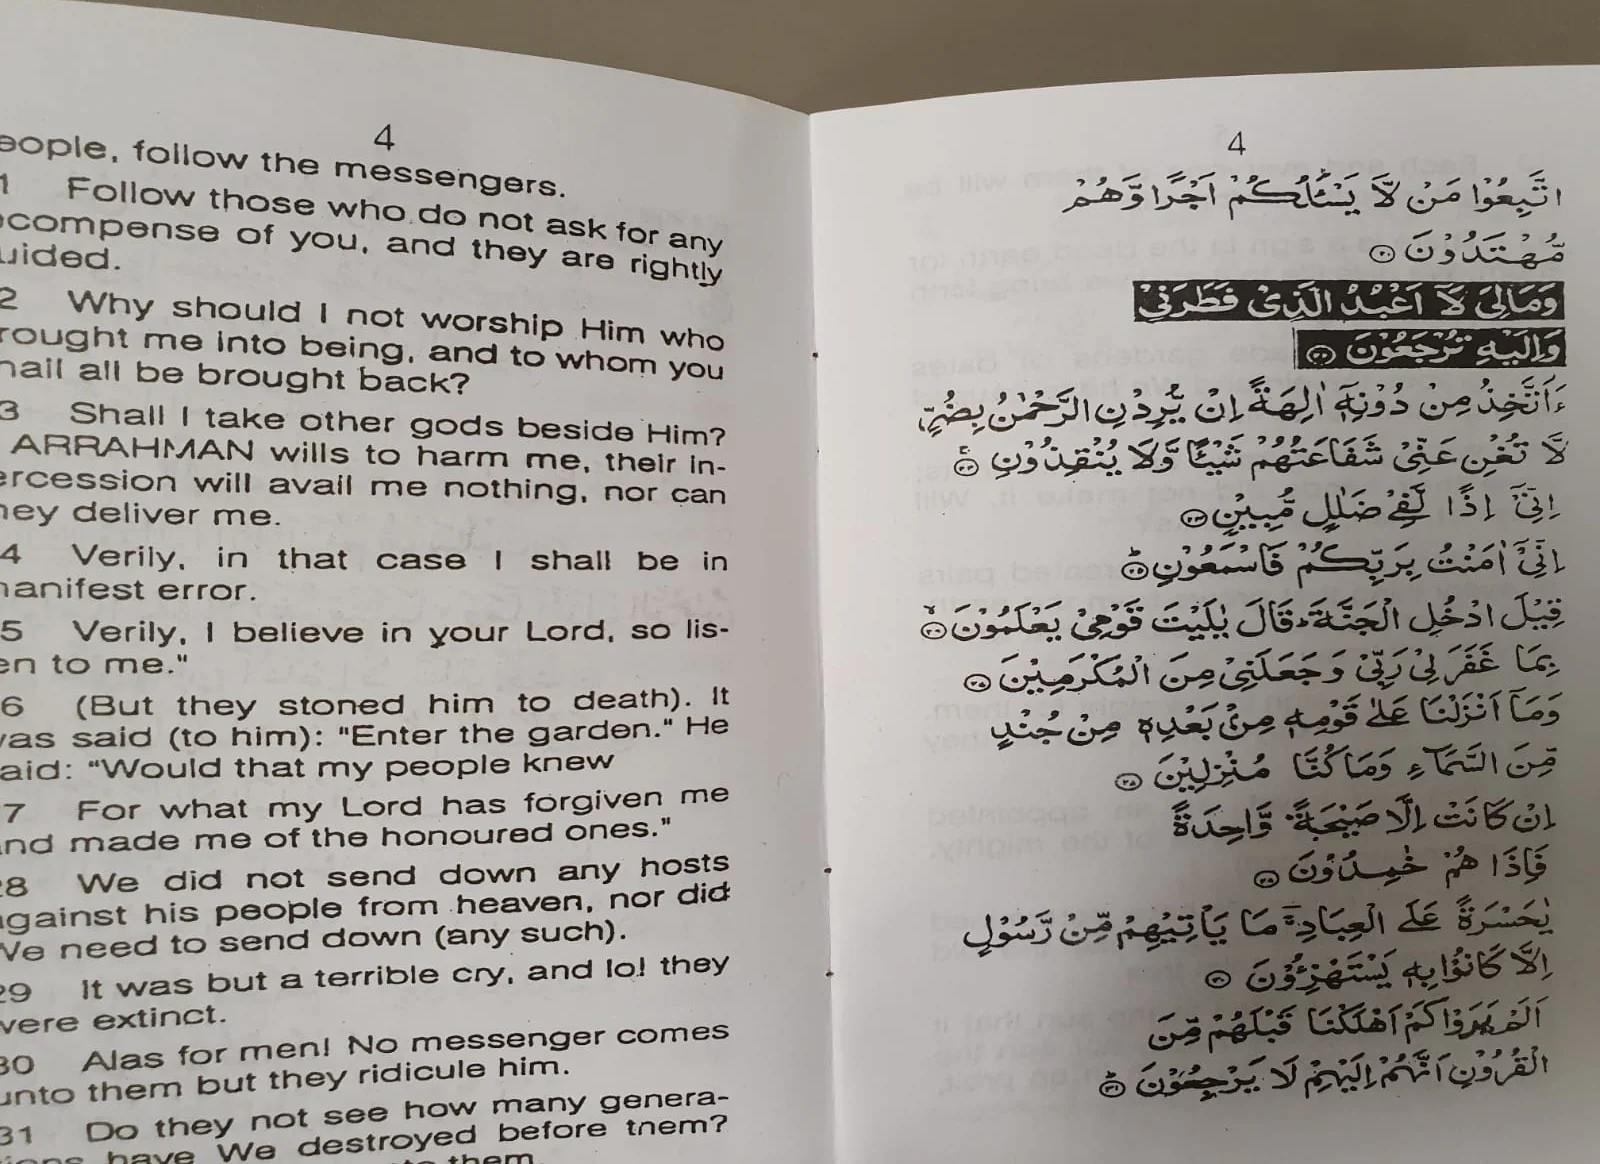 4
eople, follow the messengers.
1 Follow those who do not ask for any
compense of you, and they are rightly
uided.
2 Why should I not worship Him who
rought me into being, and to whom you
hall all be brought back?
3 Shall I take other gods beside Him?
ARRAHMAN wills to harm me, their in-
ercession will avail me nothing, nor can
hey deliver me.
4 Verily, in that case I shall be in
manifest error.
5 Verily, I believe in your Lord, so lis-
en to me."
6 (But they stoned him to death). It
was said (to him): "Enter the garden." He
aid: "Would that my people knew
7 For what my Lord has forgiven me
and made me of the honoured ones."
28 We did not send down any hosts
against his people from heaven, nor did
We need to send down (any such).
29 It was but a terrible cry, and lo! they
were extinct.
30 Alas for men! No messenger comes
unto them but they ridicule him.
31 Do they not see how many genera-
tions have We destroyed before them?
them.
4
اتَّبِعُوْا مَنْ لَّا يَسْـَٔلُكُمْ اَجْرًا وَّهُمْ
مُّهْتَدُوْنَ
وَمَالِىَ لَآ اَعْبُدُ الَّذِىْ فَطَرَنِىْ
وَاِلَيْهِ تُرْجَعُوْنَ
ءَاَتَّخِذُ مِنْ دُوْنِهٖٓ اٰلِهَةً اِنْ يُّرِدْنِ الرَّحْمٰنُ بِضُرٍّ
لَّا تُغْنِ عَنِّىْ شَفَاعَتُهُمْ شَيْـًٔا وَّلَا يُنْقِذُوْنِ
اِنِّىْٓ اِذًا لَّفِىْ ضَلٰلٍ مُّبِيْنٍ
اِنِّىْٓ اٰمَنْتُ بِرَبِّكُمْ فَاسْمَعُوْنِ
قِيْلَ ادْخُلِ الْجَنَّةَ قَالَ يٰلَيْتَ قَوْمِىْ يَعْلَمُوْنَ
بِمَا غَفَرَ لِىْ رَبِّىْ وَجَعَلَنِىْ مِنَ الْمُكْرَمِيْنَ
وَمَآ اَنْزَلْنَا عَلٰى قَوْمِهٖ مِنْۢ بَعْدِهٖ مِنْ جُنْدٍ
مِّنَ السَّمَآءِ وَمَا كُنَّا مُنْزِلِيْنَ
اِنْ كَانَتْ اِلَّا صَيْحَةً وَّاحِدَةً
فَاِذَا هُمْ خٰمِدُوْنَ
يٰحَسْرَةً عَلَى الْعِبَادِ مَا يَاْتِيْهِمْ مِّنْ رَّسُوْلٍ
اِلَّا كَانُوْا بِهٖ يَسْتَهْزِءُوْنَ
اَلَمْ يَرَوْا كَمْ اَهْلَكْنَا قَبْلَهُمْ مِّنَ
الْقُرُوْنِ اَنَّهُمْ اِلَيْهِمْ لَا يَرْجِعُوْنَ